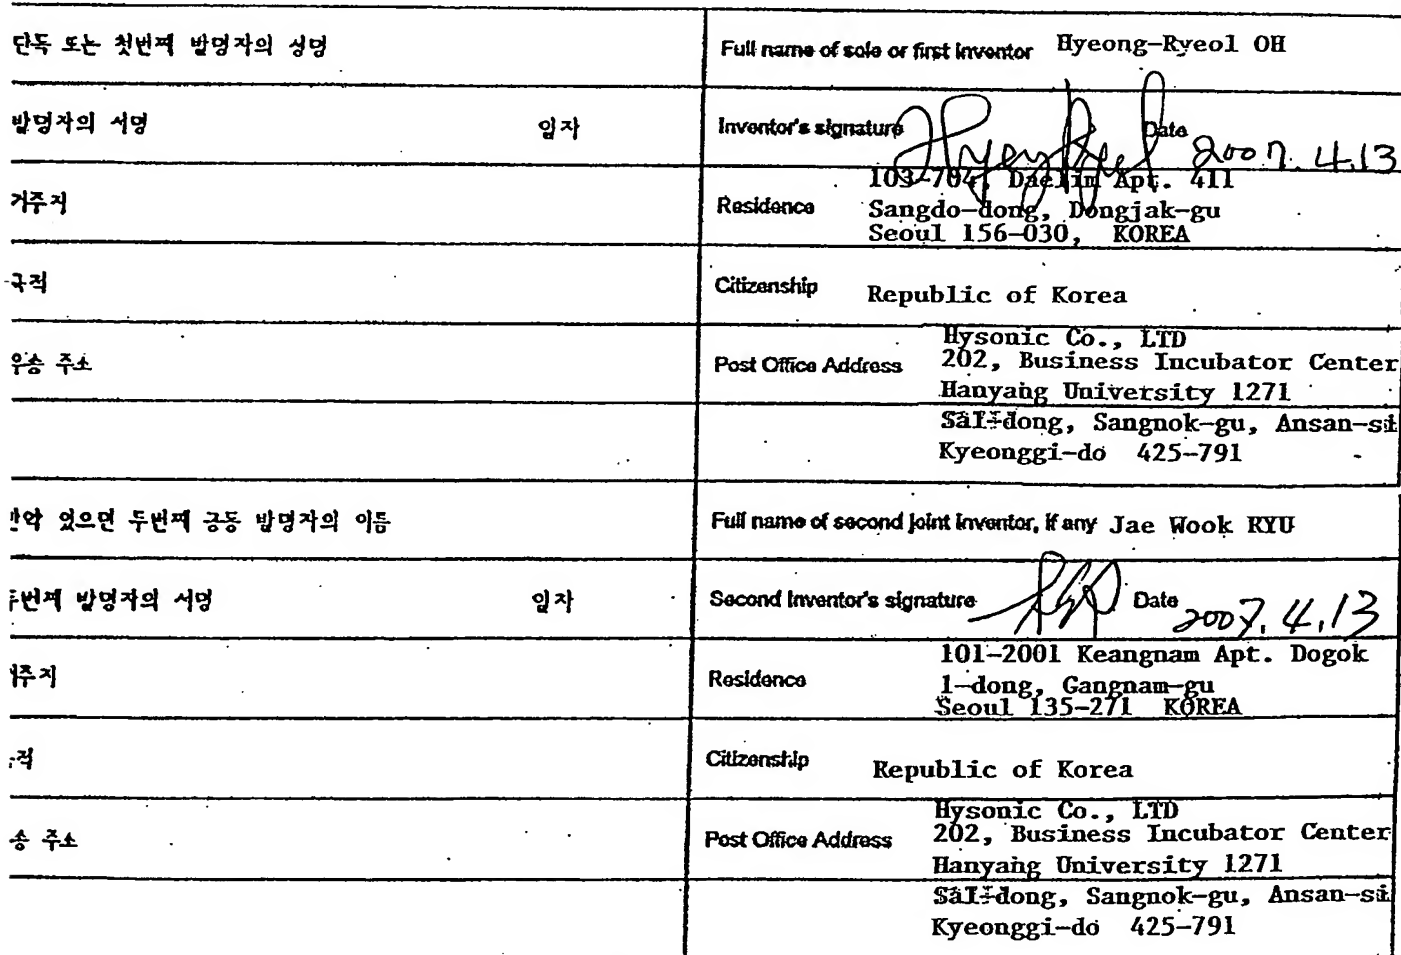 단독 또는 첫번째 발명자의 성명
Full name of sole or first inventor Hyeong-Ryeol OH
발명자의 서명 일자
Inventor's signature Date 2007. 4.13
거주지
Residence 103-704, Daelim Apt. 411
Sangdo-dong, Dongjak-gu
Seoul 156-030, KOREA
국적
Citizenship Republic of Korea
우송 주소
Post Office Address Hysonic Co., LTD
202, Business Incubator Center
Hanyang University 1271
Sa1-dong, Sangnok-gu, Ansan-si
Kyeonggi-do 425-791
만약 있으면 두번째 공동 발명자의 이름
Full name of second joint inventor, if any Jae Wook RYU
두번째 발명자의 서명 일자
Second Inventor's signature Date 2007. 4.13
거주지
Residence 101-2001 Keangnam Apt. Dogok
1-dong, Gangnam-gu
Seoul 135-271 KOREA
국적
Citizenship Republic of Korea
송 주소
Post Office Address Hysonic Co., LTD
202, Business Incubator Center
Hanyang University 1271
Sa1-dong, Sangnok-gu, Ansan-si
Kyeonggi-do 425-791